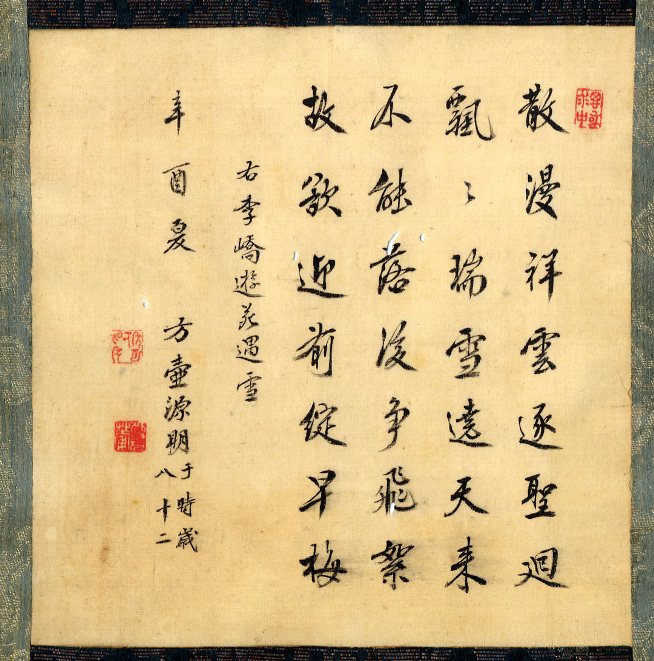 散漫祥雲逐聖廻
飄〻瑞雪遶天来
不能落後争飛絮
故欲迎前綻早梅
右李嶠遊苑遇雪
辛酉夏 方壷源明
于時歳
八十二